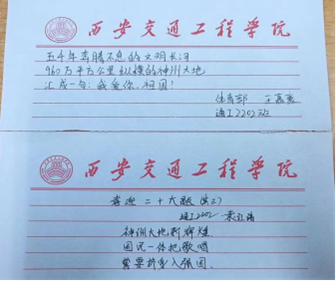 西安交通工程学院
五千年奔腾不息的文明长河
960万平方公里纵横的神州大地
汇成一句:我爱你,祖国!
体育部 王
通工2202班
西安交通工程学院
喜迎二十大
通工2202
神州大地新辉煌
国民一体把歌唱